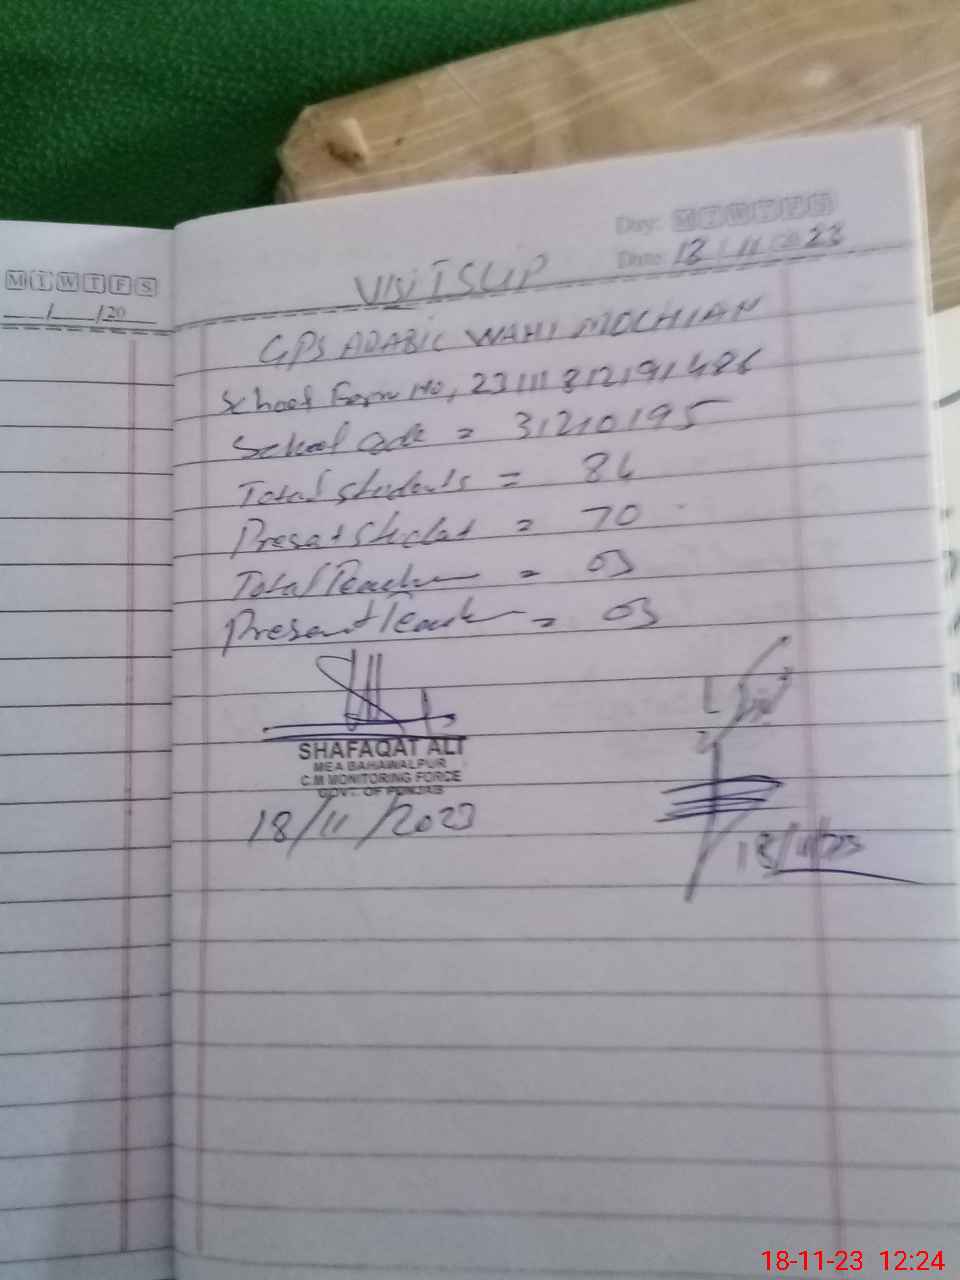 M T W T F S
/ /20
Day: M T W T F S
Date: 18/11/2023
VISIT SLIP
GPS ARABIC WAHI MOCHIAN
School Form No, 23111812191486
School Code = 31210195
Total students = 84
Present Student = 70
Total Teacher = 03
Present Teacher = 03
SHAFAQAT ALI
MEA BAHAWALPUR
C.M MONITORING FORCE
GOVT. OF PUNJAB
18/11/2023
18/11/23
18-11-23 12:24